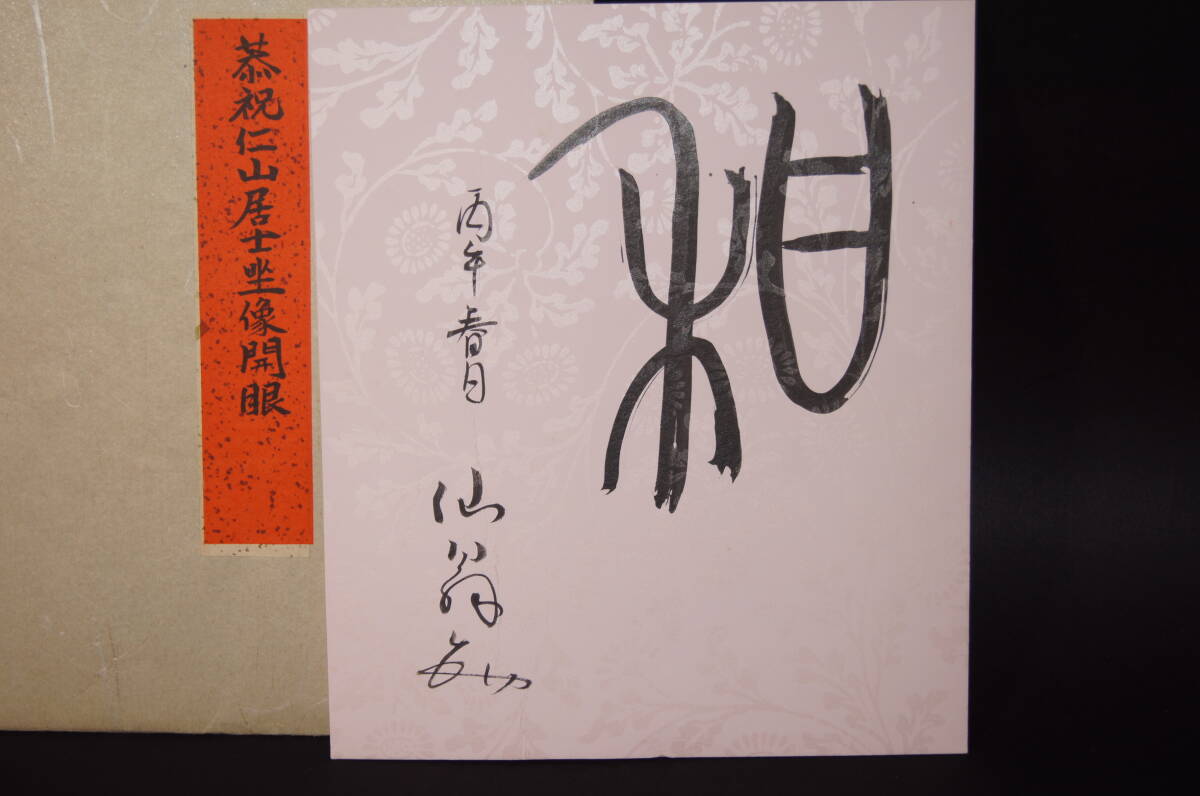 和
丙午春日 仙翁
恭祝仁山居士坐像開眼